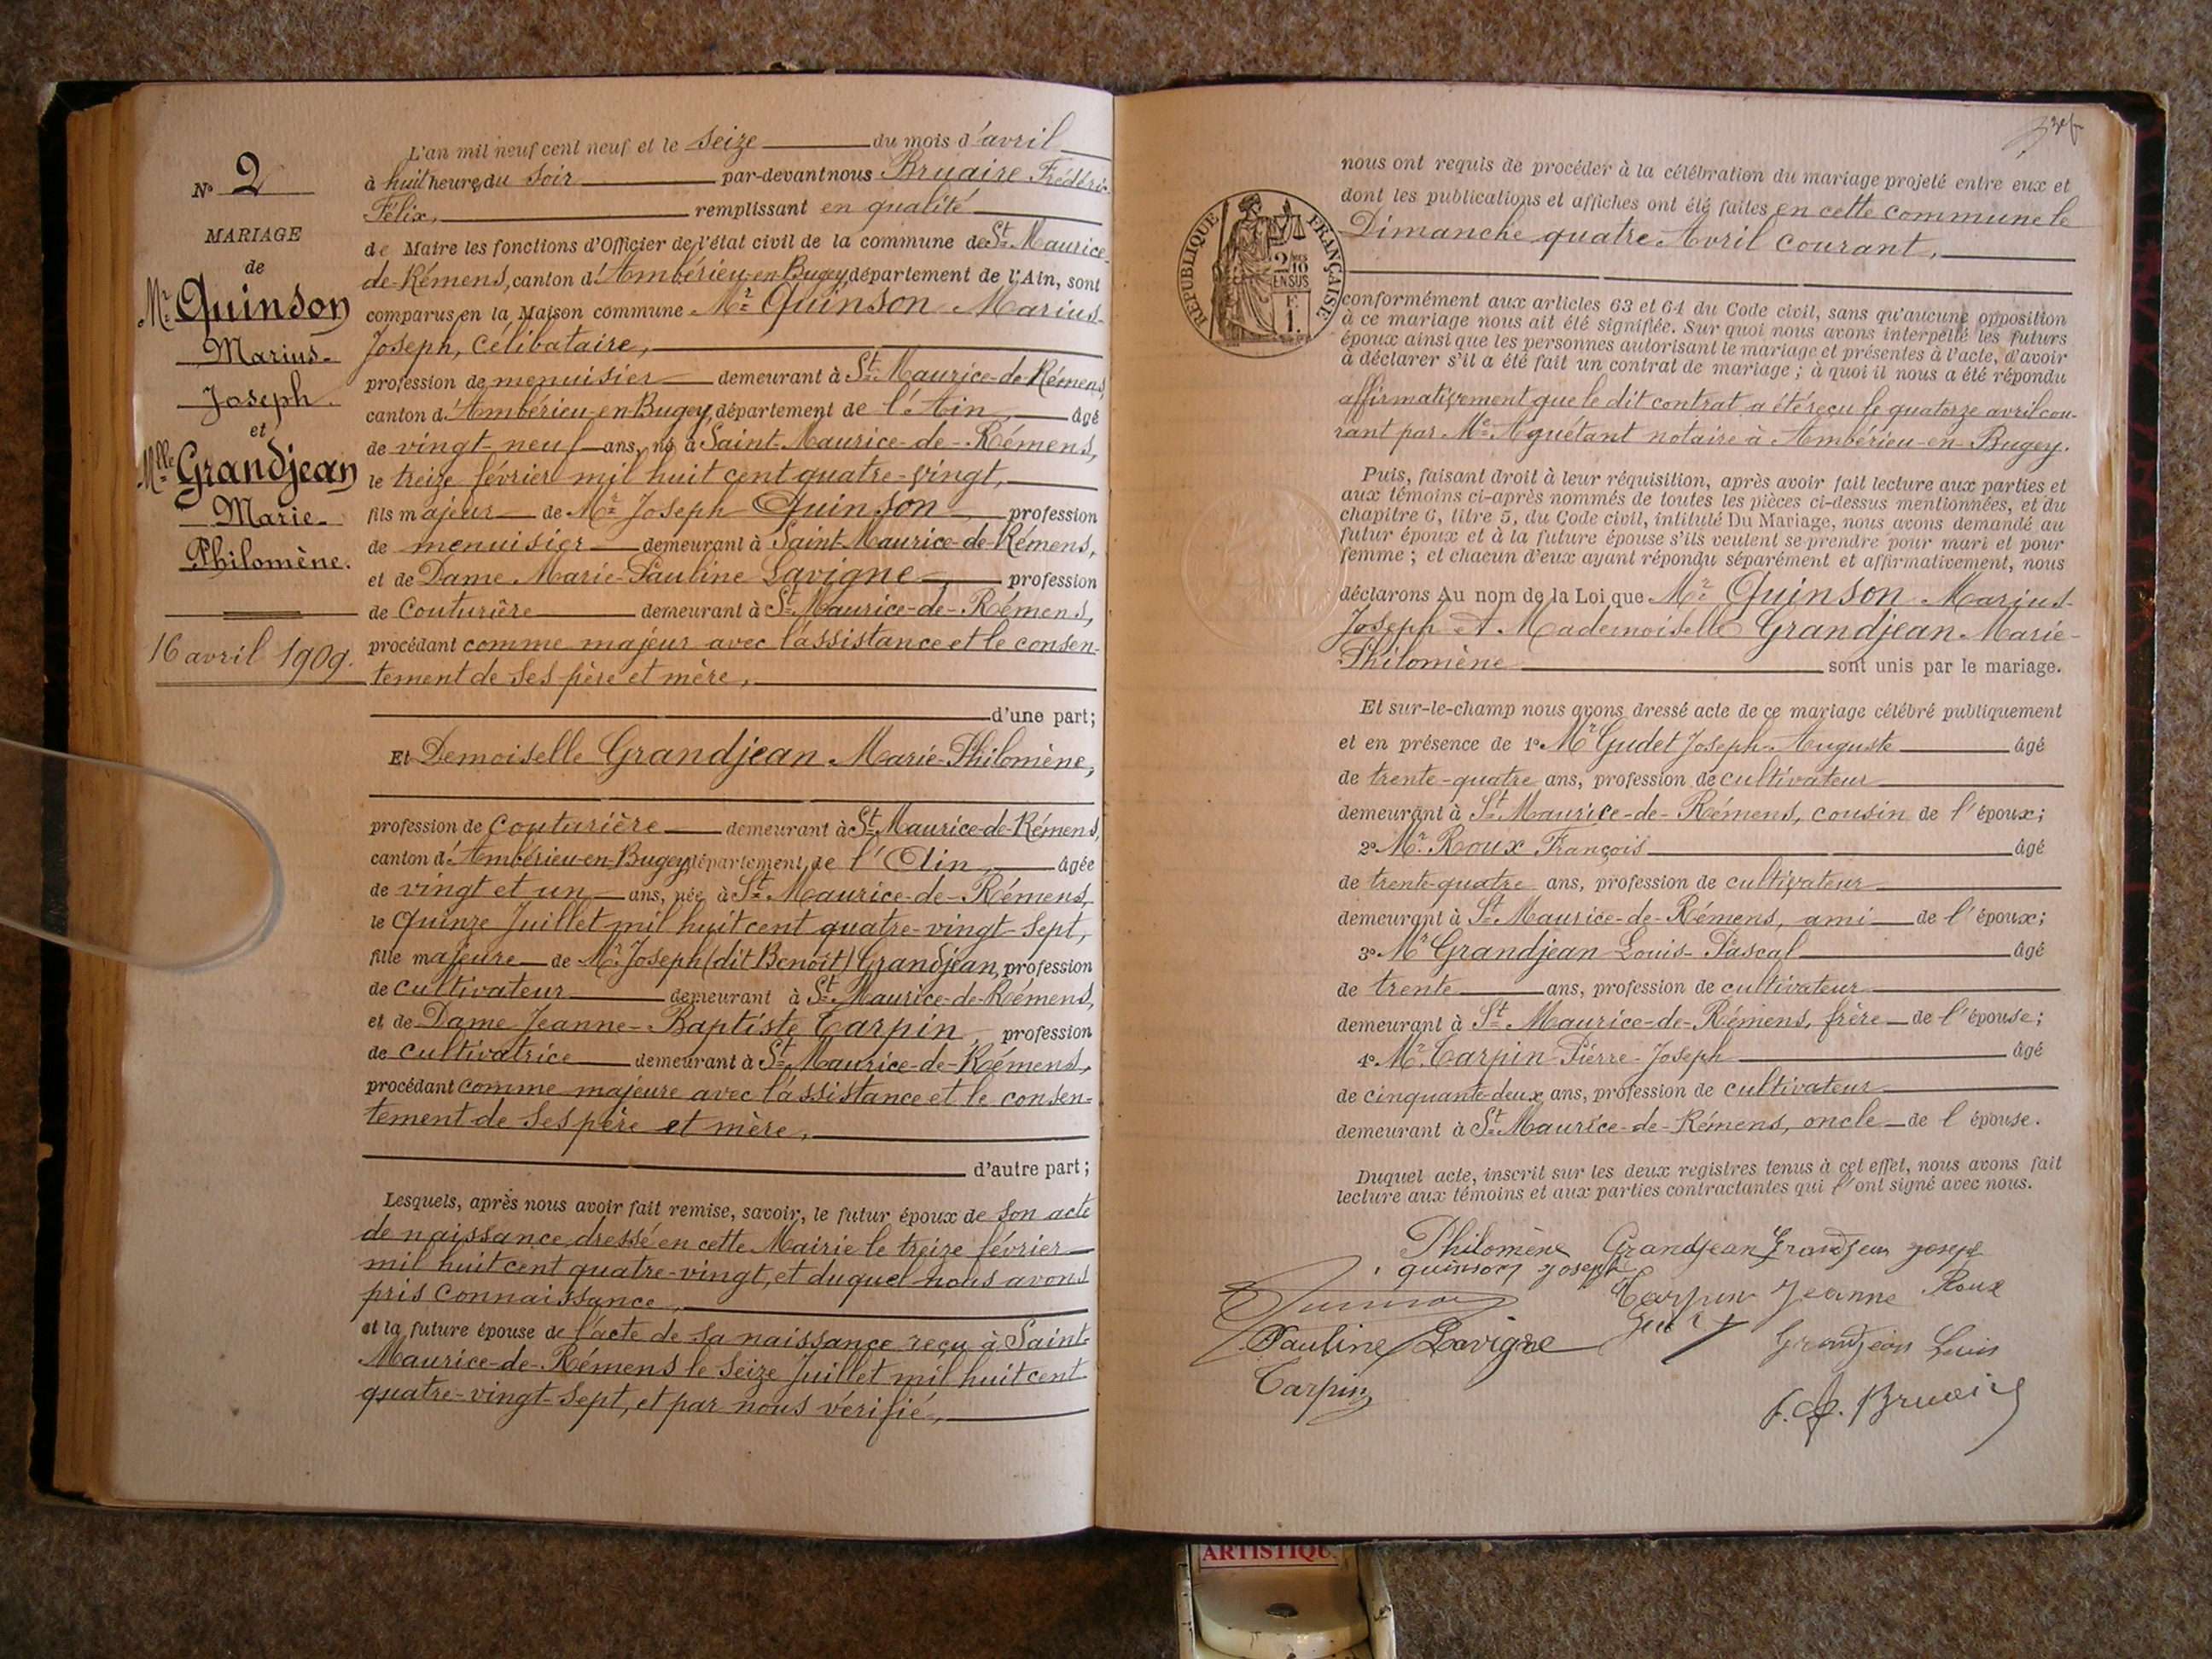 N° 2
MARIAGE
de
Mr. Quinson
Marius-
Joseph.
et
Mlle Grandjean
Marie-
Philomène.
16 avril 1909.
L'an mil neuf cent neuf et le seize du mois d'avril
à huit heures du soir par-devant nous Bruaire Frédéric-
Félix, remplissant en qualité
de Maire les fonctions d'Officier de l'état civil de la commune de St. Maurice-
de-Rémens, canton d'Ambérieu-en-Bugey, département de l'Ain, sont
comparus, en la Maison commune Mr. Quinson Marius-
Joseph, célibataire,
profession de menuisier demeurant à St. Maurice-de-Rémens,
canton d'Ambérieu-en-Bugey, département de l'Ain, âgé
de vingt-neuf ans, né à Saint-Maurice-de-Rémens,
le treize février mil huit cent quatre-vingt,
fils majeur de Mr. Joseph Quinson profession
de menuisier demeurant à Saint-Maurice-de-Rémens,
et de Dame Marie-Pauline Lavigne, profession
de Couturière demeurant à St. Maurice-de-Rémens,
procédant comme majeur avec l'assistance et le consen-
tement de ses père et mère,
d'une part;
Et Demoiselle Grandjean Marie-Philomène,
profession de couturière demeurant à St. Maurice-de-Rémens,
canton d'Ambérieu-en-Bugey, département de l'Ain, âgée
de vingt et un ans, née à St. Maurice-de-Rémens,
le Quinze Juillet mil huit cent quatre-vingt-sept,
fille majeure de Mr. Joseph (dit Benoît) Grandjean, profession
de cultivateur demeurant à St. Maurice-de-Rémens,
et de Dame Jeanne-Baptiste Carpin, profession
de cultivatrice demeurant à St. Maurice-de-Rémens,
procédant comme majeure avec l'assistance et le consen-
tement de ses père et mère,
d'autre part;
Lesquels, après nous avoir fait remise, savoir, le futur époux de son acte
de naissance dressé en cette Mairie le treize février
mil huit cent quatre-vingt, et duquel nous avons
pris connaissance,
et la future épouse de l'acte de sa naissance reçu à Saint-
Maurice-de-Rémens le seize Juillet mil huit cent
quatre-vingt-sept, et par nous vérifié,
RÉPUBLIQUE FRANÇAISE
2/10 EN SUS
F. 1.
nous ont requis de procéder à la célébration du mariage projeté entre eux et
dont les publications et affiches ont été faites en cette commune le
Dimanche quatre Avril courant,
conformément aux articles 63 et 64 du Code civil, sans qu'aucune opposition
à ce mariage nous ait été signifiée. Sur quoi nous avons interpellé les futurs
époux ainsi que les personnes autorisant le mariage et présentes à l'acte, d'avoir
à déclarer s'il a été fait un contrat de mariage ; à quoi il nous a été répondu
affirmativement que le dit contrat a été reçu le quatorze avril cou-
rant par Me. Aguétant notaire à Ambérieu-en-Bugey.
Puis, faisant droit à leur réquisition, après avoir fait lecture aux parties et
aux témoins ci-après nommés de toutes les pièces ci-dessus mentionnées, et du
chapitre 6, titre 5, du Code civil, intitulé Du Mariage, nous avons demandé au
futur époux et à la future épouse s'ils veulent se prendre pour mari et pour
femme ; et chacun d'eux ayant répondu séparément et affirmativement, nous
déclarons Au nom de la Loi que Mr. Quinson Marius-
Joseph et Mademoiselle Grandjean Marie-
Philomène sont unis par le mariage.
Et sur-le-champ nous avons dressé acte de ce mariage célébré publiquement
et en présence de 1° Mr. Gudet Joseph-Auguste âgé
de trente-quatre ans, profession de cultivateur
demeurant à St. Maurice-de-Rémens, cousin de l'époux;
2° Mr. Roux François âgé
de trente-quatre ans, profession de cultivateur
demeurant à St. Maurice-de-Rémens, ami de l'époux;
3° Mr. Grandjean Louis-Pascal âgé
de trente ans, profession de cultivateur
demeurant à St. Maurice-de-Rémens, frère de l'épouse;
4° Mr. Carpin Pierre-Joseph âgé
de cinquante-deux ans, profession de cultivateur
demeurant à St. Maurice-de-Rémens, oncle de l'épouse.
Duquel acte, inscrit sur les deux registres tenus à cet effet, nous avons fait
lecture aux témoins et aux parties contractantes qui l'ont signé avec nous.
Philomène Grandjean Grandjean joseph
quinson joseph
Quinson Carpin Jeanne Roux
Pauline Lavigne Grandjean Louis
Carpin
F. Bruaire
ARTISTIQU